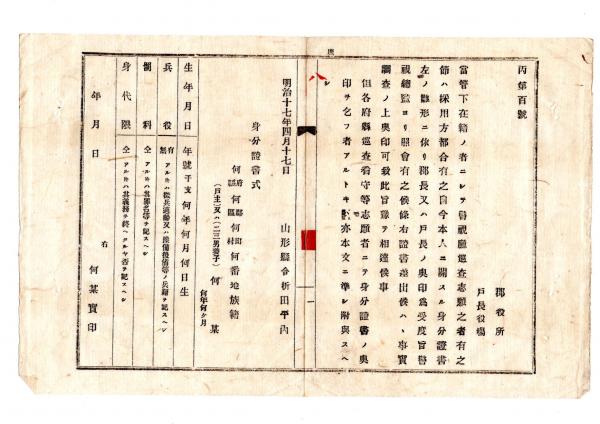 庶
丙第百號
郡役所
戸長役場
當管下在籍ノ者ニシテ警視廳巡査志願之者有之
節ハ採用方都合有之旨今本人ニ關スル身分證書
左ノ雛形ニ依リ郡長又ハ戸長ノ奥印爲受度旨警
視總監ヨリ照會有之候條右證書差出候ハヽ事實
調査ノ上奥印可致此旨豫テ相達候事
但各府縣巡査看守等志願者ニテ身分證書ノ奥
印ヲ乞フ者アルトキモ亦本文ニ準シ附與スヘ
シ
明治十七年四月十七日
山形縣令折田平内
身分證書式
何府縣何郡區何町村何番地族籍
(戸主)又ハ(二三男養子)何某
何年何ヶ月
生年月日 年號干支何年何月何日生
兵役 有無 アルトキハ從兵適齡又ハ豫備後備等ノ兵籍ヲ記スヘシ
懲科 仝 アルトキハ其罪名等ヲ記スヘシ
身代限 仝 アルトキハ其義務ヲ終ヘタルヤ否ヲ記スヘシ
年月日
右
何某實印
八
一